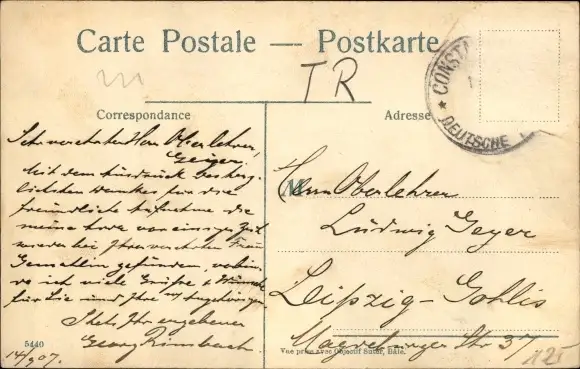 Carte Postale — Postkarte
TR
CONSTA
DEUTSCHE
Correspondance
Adresse
Sehr verehrter Herr Oberlehrer
Geyer.
Mit dem Ausdruck
lichsten Dankes für die
freundliche Aufnahme die
meine vor einiger Zeit
wieder bei Ihrer verehrten Frau
Gemahlin gefunden,
ich viele Grüsse & Wünsche
für Sie und Ihre Angehörigen
Stets Ihr ergebener
Georg
5440
14/9 07.
Herrn Oberlehrer
Ludwig Geyer
Leipzig-Gohlis
Magdeburger Str 37
Vue prise avec Objectif Suter, Bâle.